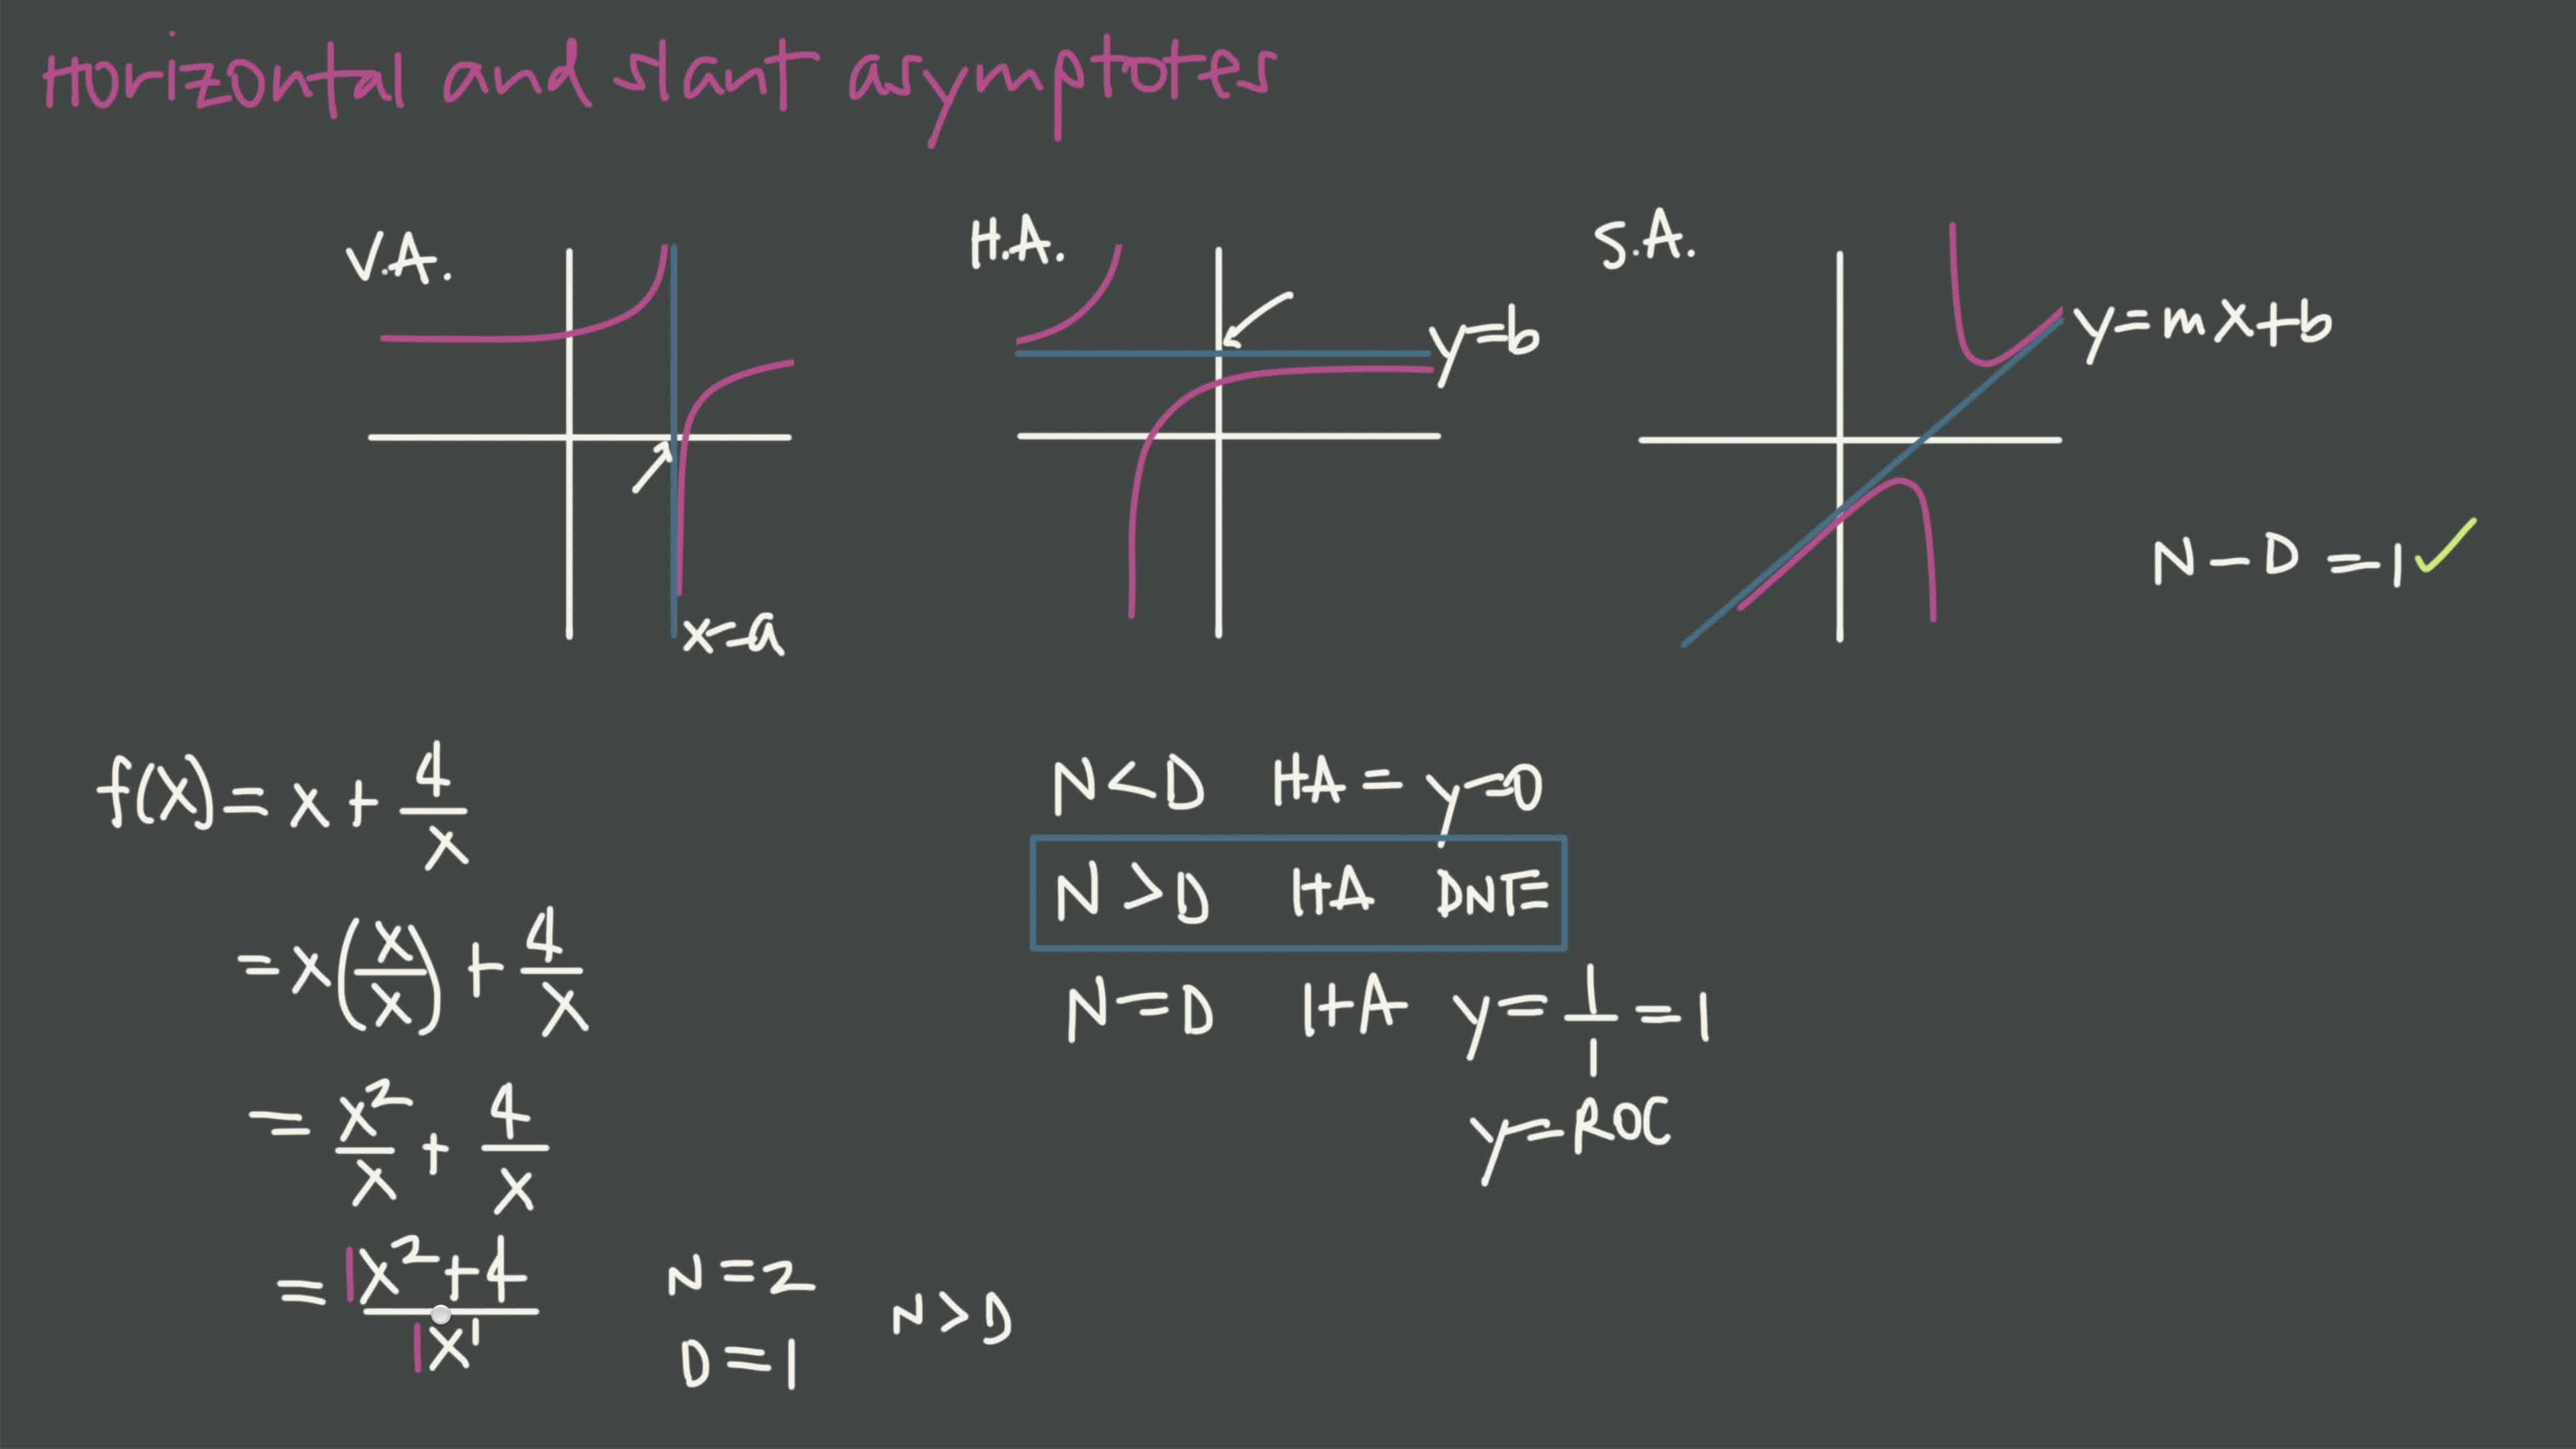 Horizontal and slant asymptotes
V.A.
x=a
H.A.
y=b
S.A.
y=mx+b
N-D=1✓
f(x)=x+4/x
=x(x/x)+4/x
=x²/x+4/x
=1x²+4/1x¹
N=2
D=1
N>D
N<D HA=y=0
N>D HA DNE
N=D HA y=1/1=1
y=ROC